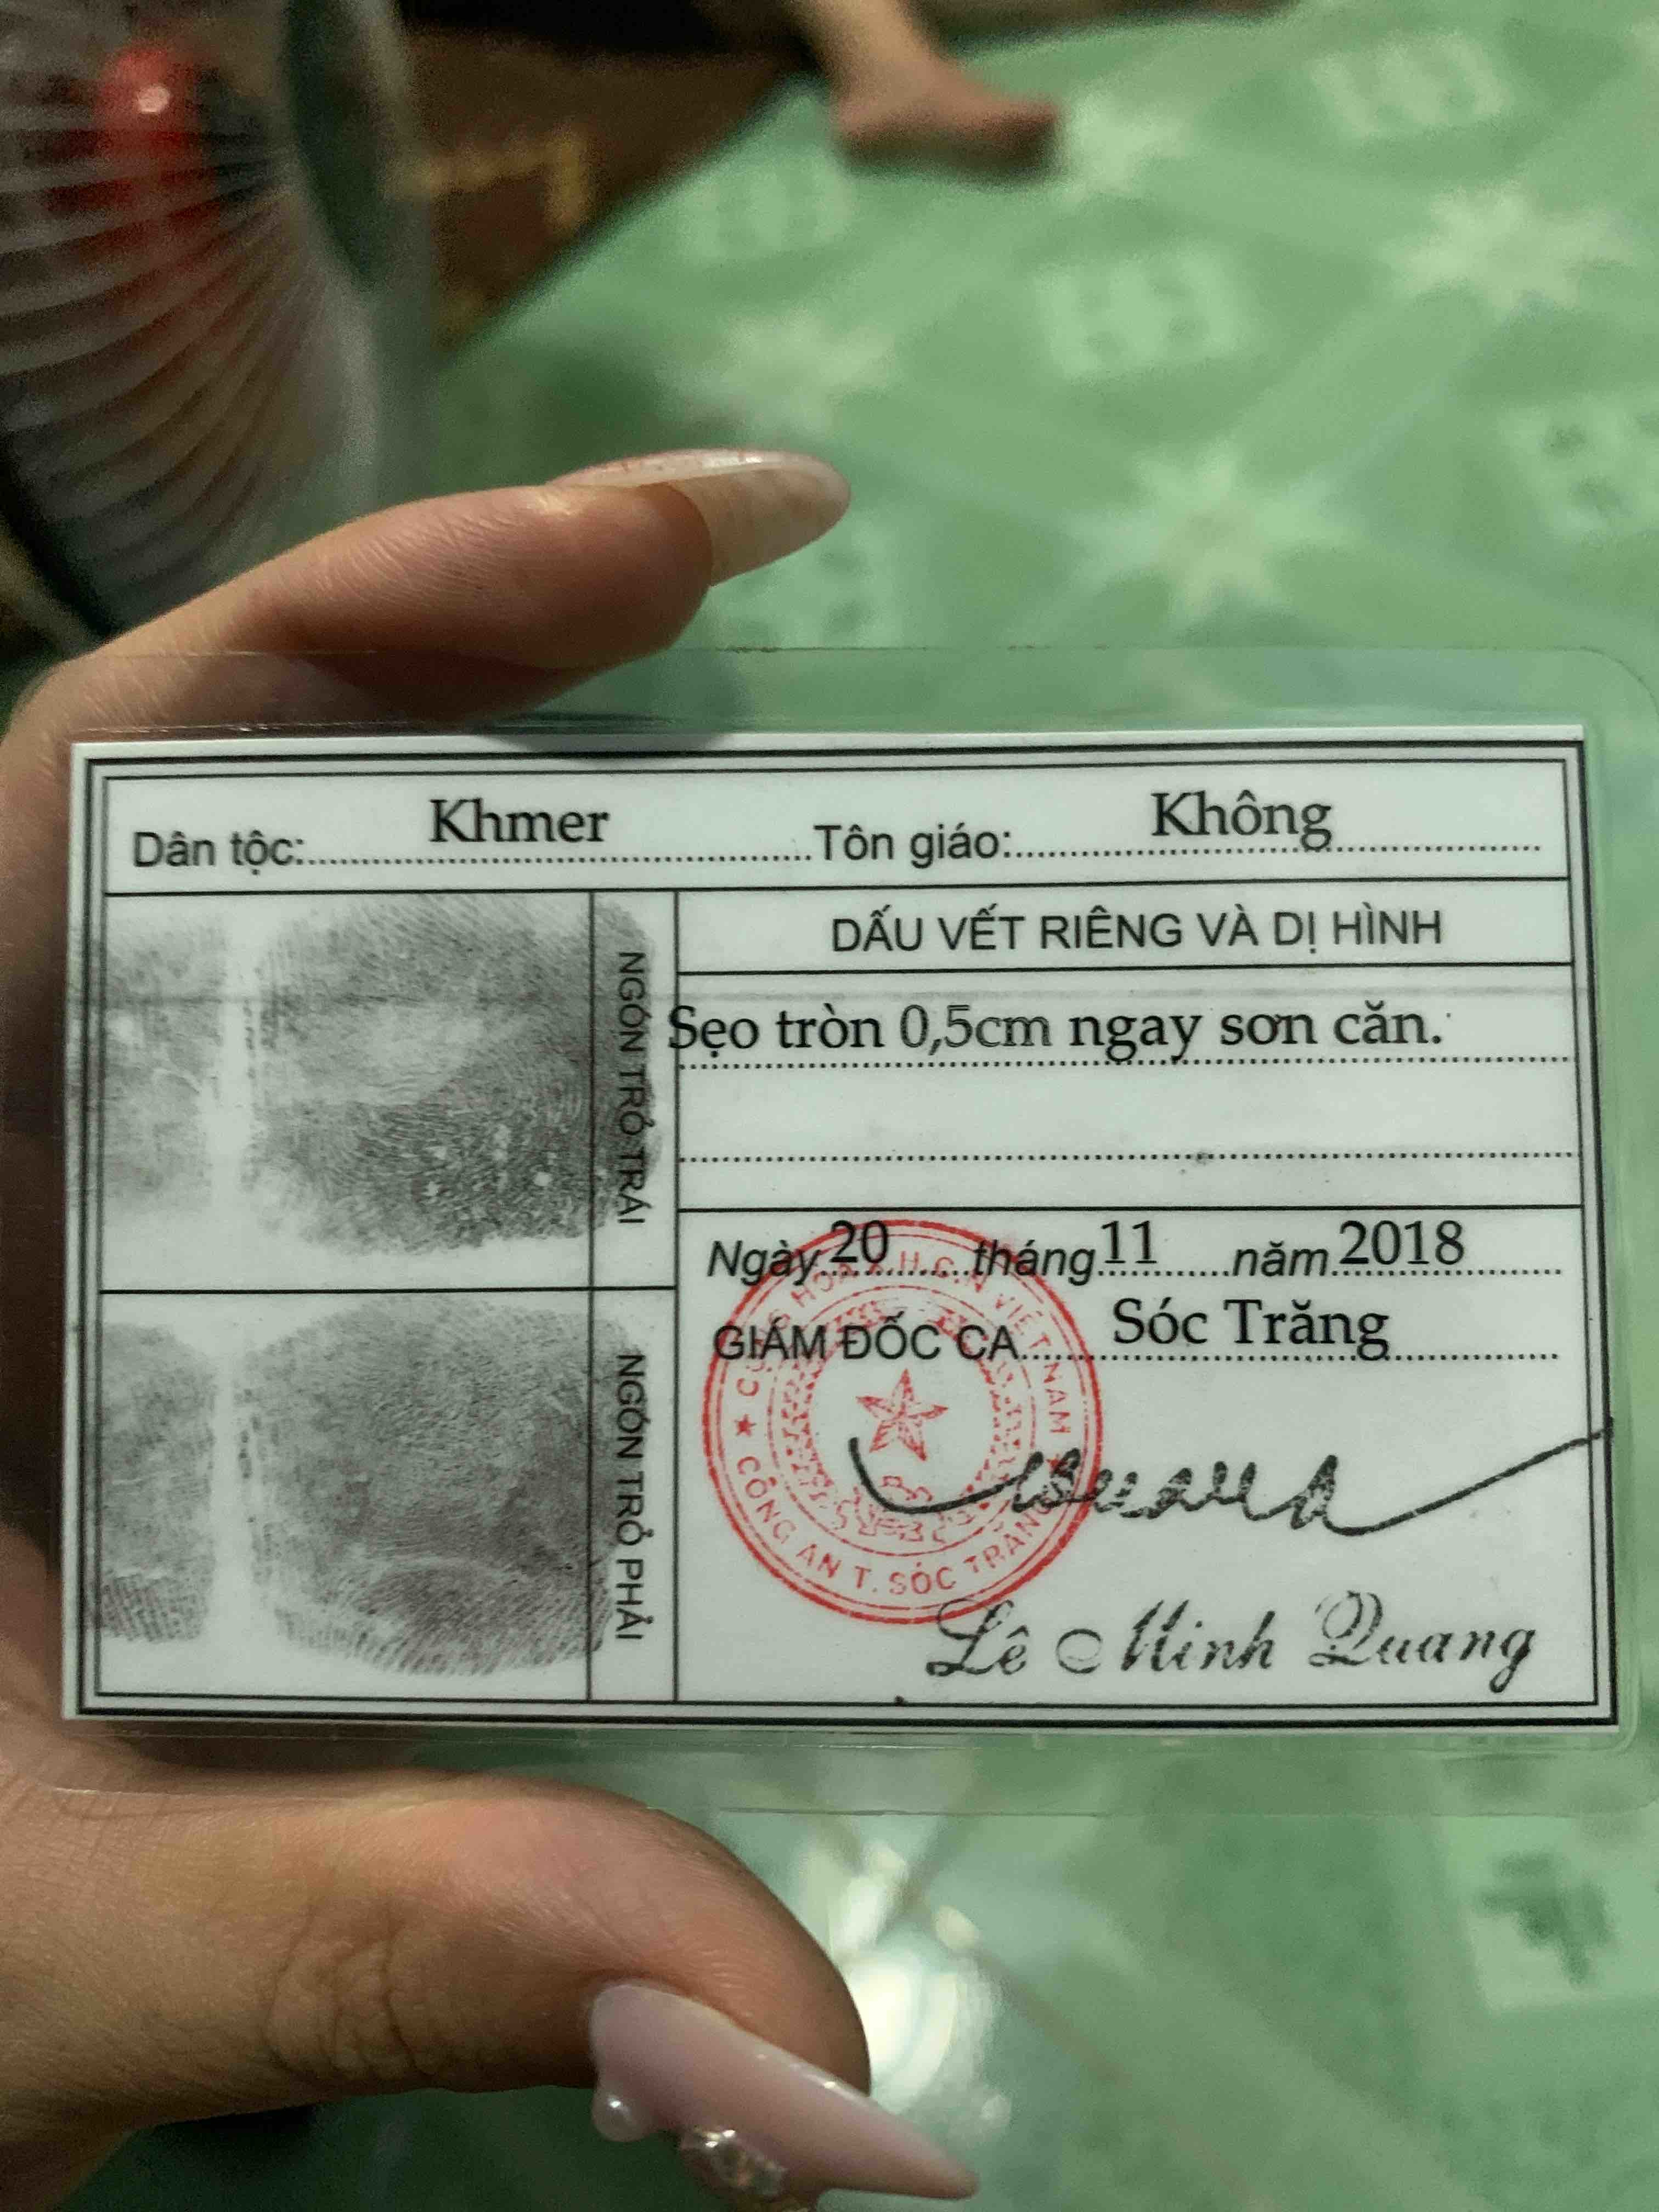 Dân tộc: Khmer Tôn giáo: Không
NGÓN TRỎ TRÁI
DẤU VẾT RIÊNG VÀ DỊ HÌNH
Sẹo tròn 0,5cm ngay sơn căn.
Ngày 20 tháng 11 năm 2018
GIÁM ĐỐC CA Sóc Trăng
CỘNG HÒA X.H.C.N VIỆT NAM
CÔNG AN T. SÓC TRĂNG
NGÓN TRỎ PHẢI
Lê Minh Quang